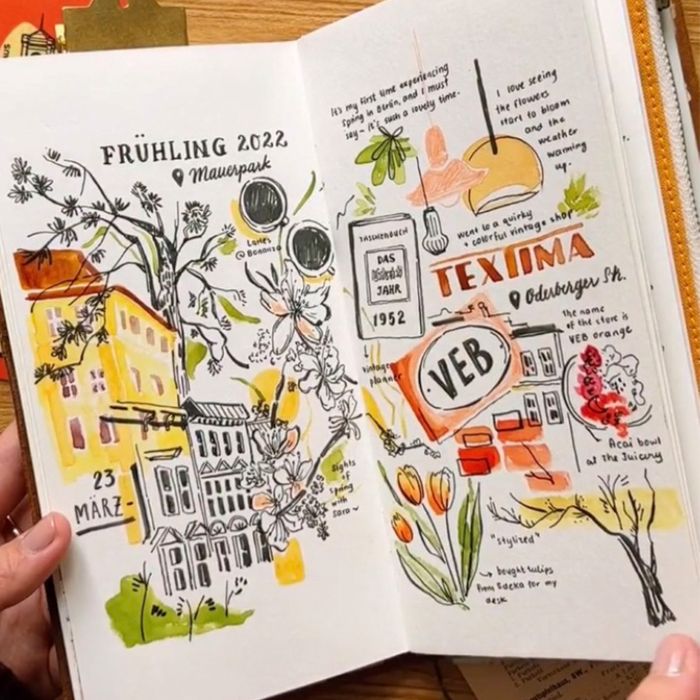 FRÜHLING 2022
Mauerpark
Lattes
@ Bonanza
23
MÄRZ-
Sights
of
spring
with
Sara~
It's my first time experiencing
spring in Berlin, and I must
say - it's such a lovely time.
I love seeing
the flowers
start to bloom
and the
weather
warming
up.
went to a quirky
+ colorful vintage shop
TASCHENBUCH
DAS
JAHR
1952
TEXTIMA
Oderberger Str.
the name
of the store is
VEB orange
vintage
planner
VEB
Acai bowl
at The Juicery
"stylized"
bought tulips
from Edeka for my
desk